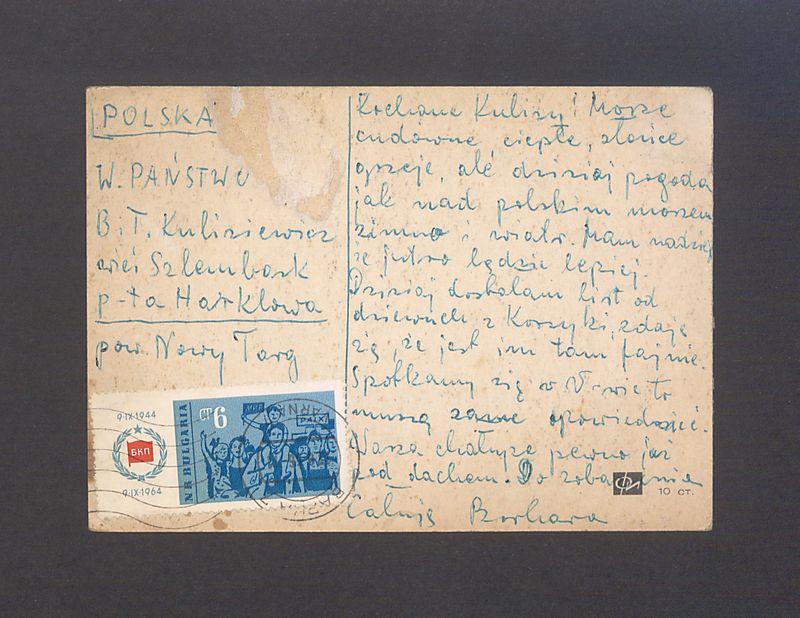 POLSKA
W. PAŃSTWO
B. i T. Kulisiewicz
wieś Szlembark
p-ta Harklowa
pow. Nowy Targ
Kochane Kulisy! Morze
cudowne ciepłe, słońce
grzeje, ale dzisiaj pogoda
jak nad polskim morzem
zimno i wiatr. Mam nadzieję
że jutro będzie lepiej.
Dzisiaj dostałam list od
z Korsyki, zdaje
się, że jest im tam fajnie.
Spotkamy się w W-wie to
muszą same opowiedzieć.
Wasza chałupa pewno już
pod dachem. Do zobaczenia
Całuję Barbara
9·IX·1944
БКП
9·IX·1964
N.R. BULGARIA
CT 6
PAIX
10 CT.